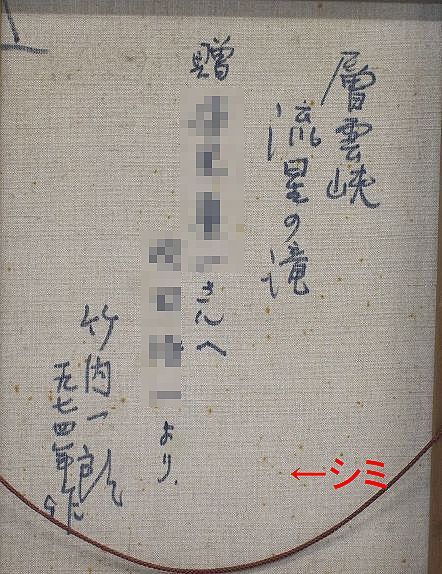 層雲峡
流星の滝
贈
さんへ
より
竹内一郎
一九七四年作
←シミ